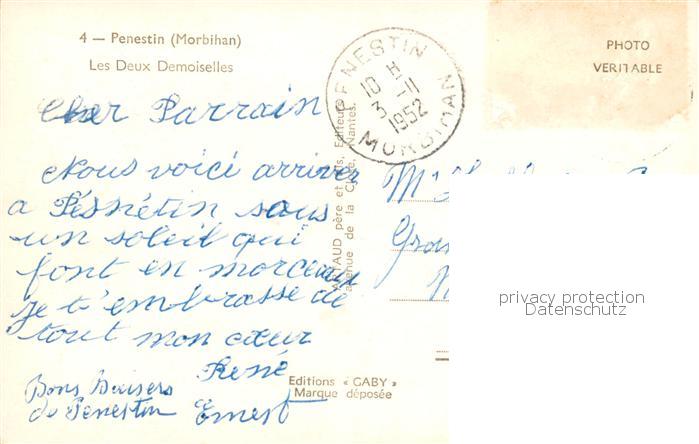 4 — Penestin (Morbihan)
Les Deux Demoiselles
PHOTO
VERITABLE
PENESTIN
10 H
3 -11
1952
MORBIHAN
Cher Parrain
Nous voici arriver
a Pésnétin sous
un soleil qui
font en morceaux
je t'embrasse de
tout mon cœur
René
Bons Baisers
de Penestin Ernest
père et fils, Editeurs
avenue de la Nantes.
Editions « GABY »
Marque déposée
privacy protection
Datenschutz